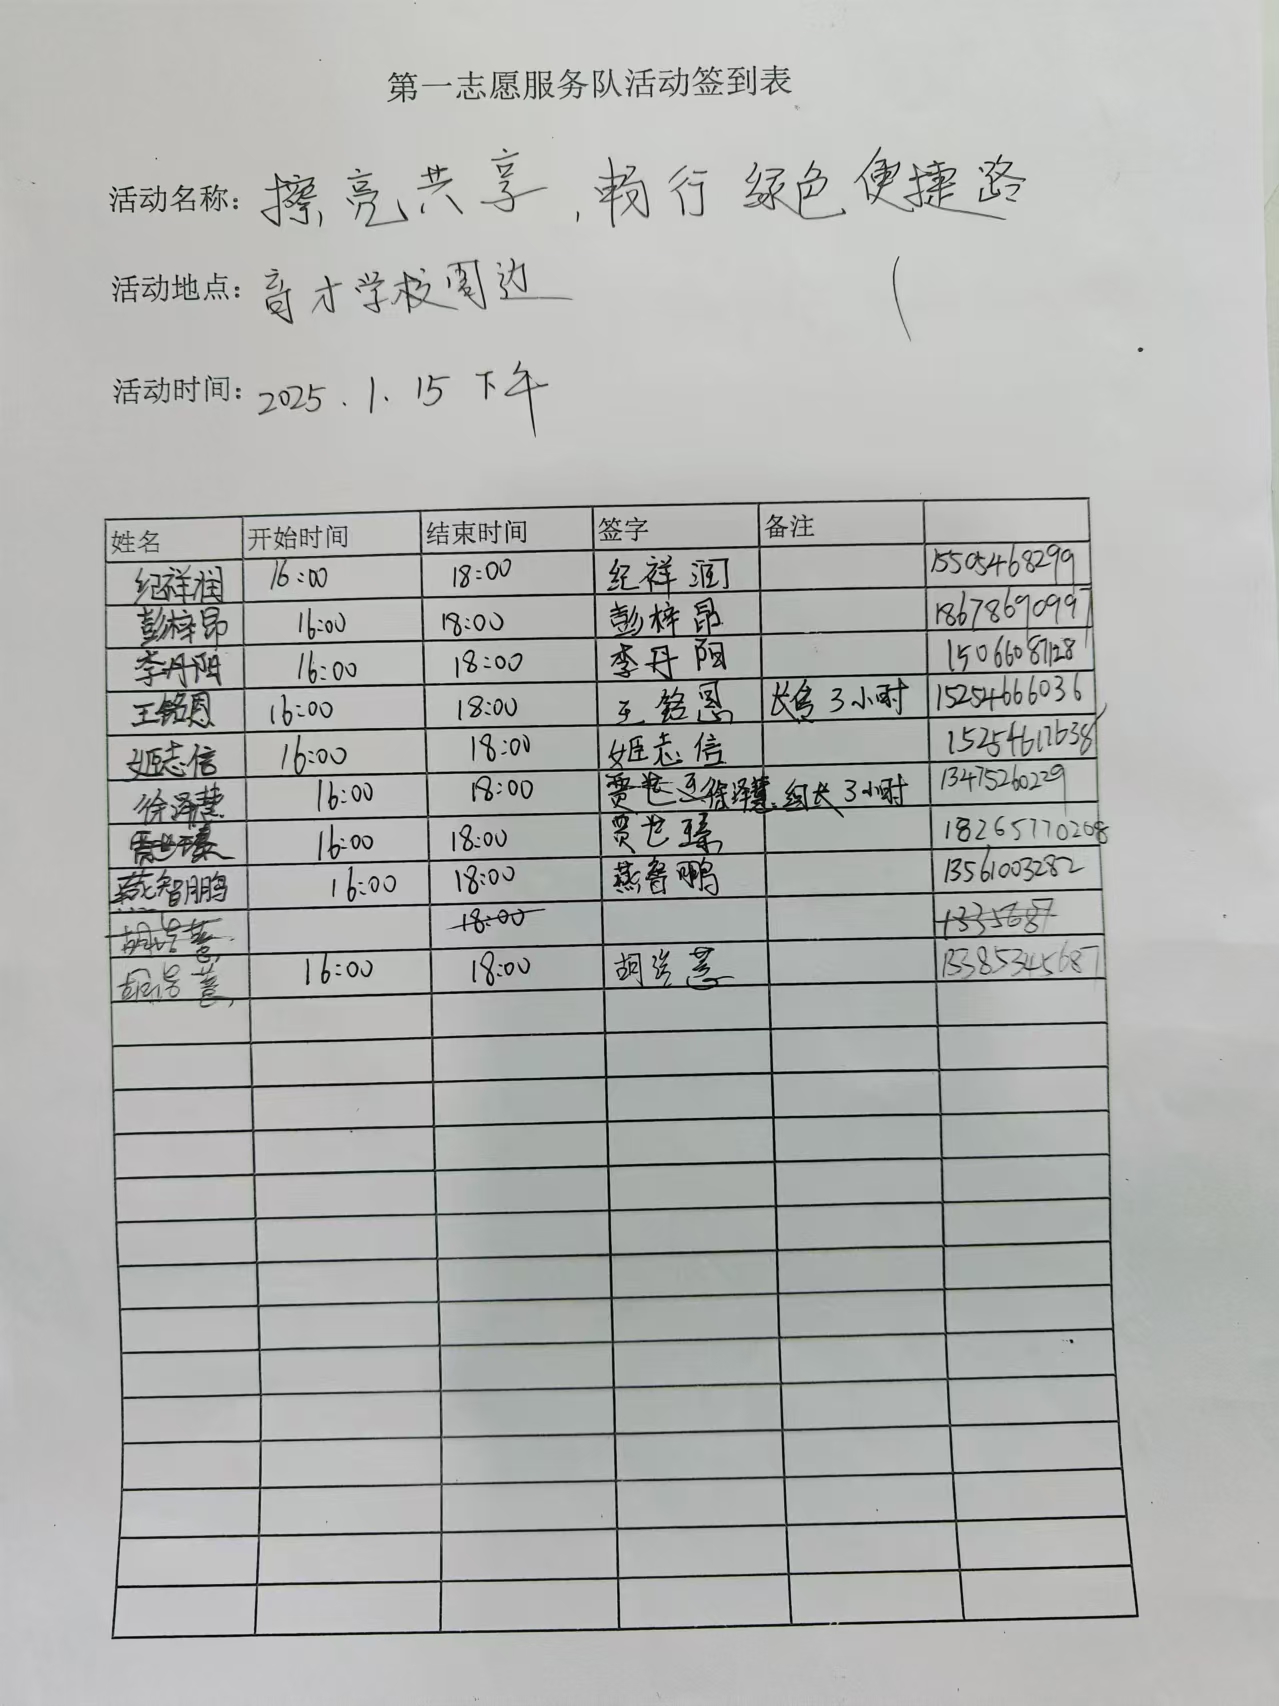 第一志愿服务队活动签到表
活动名称：擦亮共享，畅行绿色便捷路
活动地点：育才学校周边
活动时间：2025.1.15 下午
姓名 开始时间 结束时间 签字 备注
纪祥润 16:00 18:00 纪祥润 15505468299
彭梓昂 16:00 18:00 彭梓昂 18678690997
李丹阳 16:00 18:00 李丹阳 15066087128
王铭恩 16:00 18:00 王铭恩 3小时 15254666036
姬志信 16:00 18:00 姬志信 15254617638
徐泽慧 16:00 18:00 贾世 徐泽慧 组长 3小时 13475260229
贾世瑧 16:00 18:00 贾世瑧 18265770208
燕智鹏 16:00 18:00 燕智鹏 13561003282
18:00 1335687
16:00 18:00 13385345687